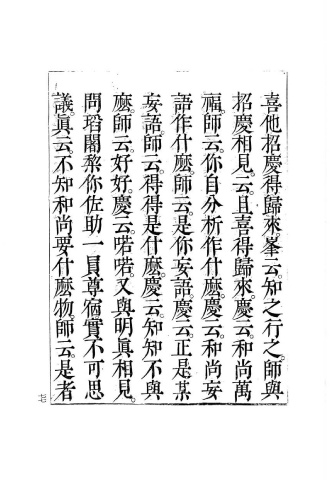 喜他招慶得歸來。峯云。知之行之。師與
招慶相見。云。且喜得歸來。慶云。和尚萬
福。師云。你自分析作什麽。慶云。和尚妄
語作什麽。師云。是你妄語。慶云。正是某
妄語。師云。得得是什麽。慶云。知知不與
麽。師云。好好。慶云。喏喏。又與明眞相見。
問瑫闍黎你佐助一員尊宿實不可思
議。眞云。不知和尚要什麽物。師云。是者